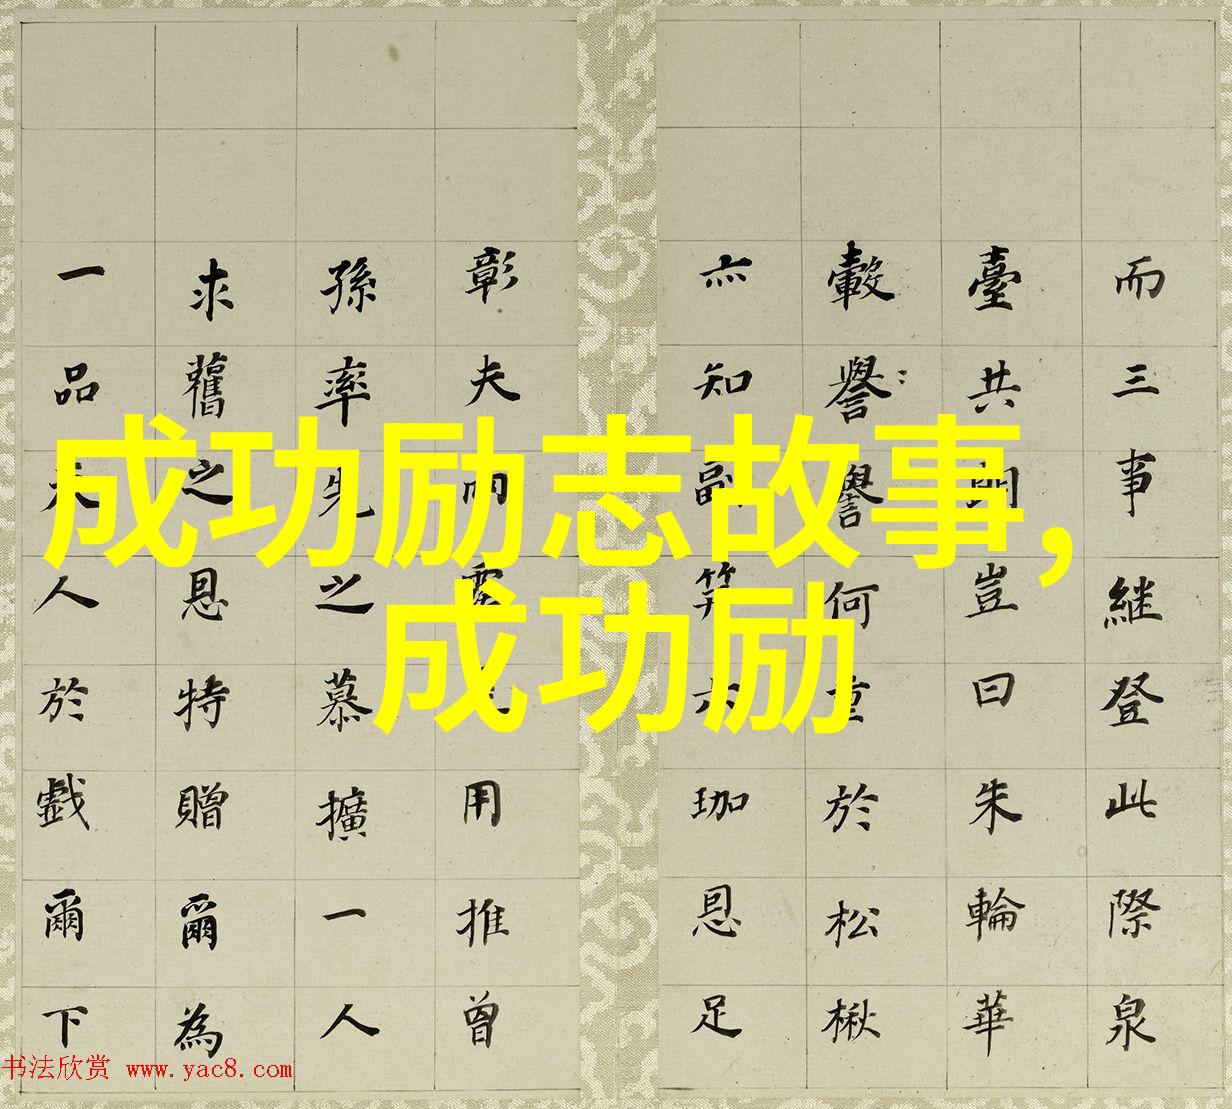 成功励志故事,
成功励
而三事継登此際泉
臺共開豈曰朱輪華
轂譽譽何重於松楸
亦知副笄六珈恩足
彰夫雨露用推曾
孫率先之慕擴一人
求舊之恩特贈爾為
一品夫人於戲爾下
书法欣赏 www.yac8.com